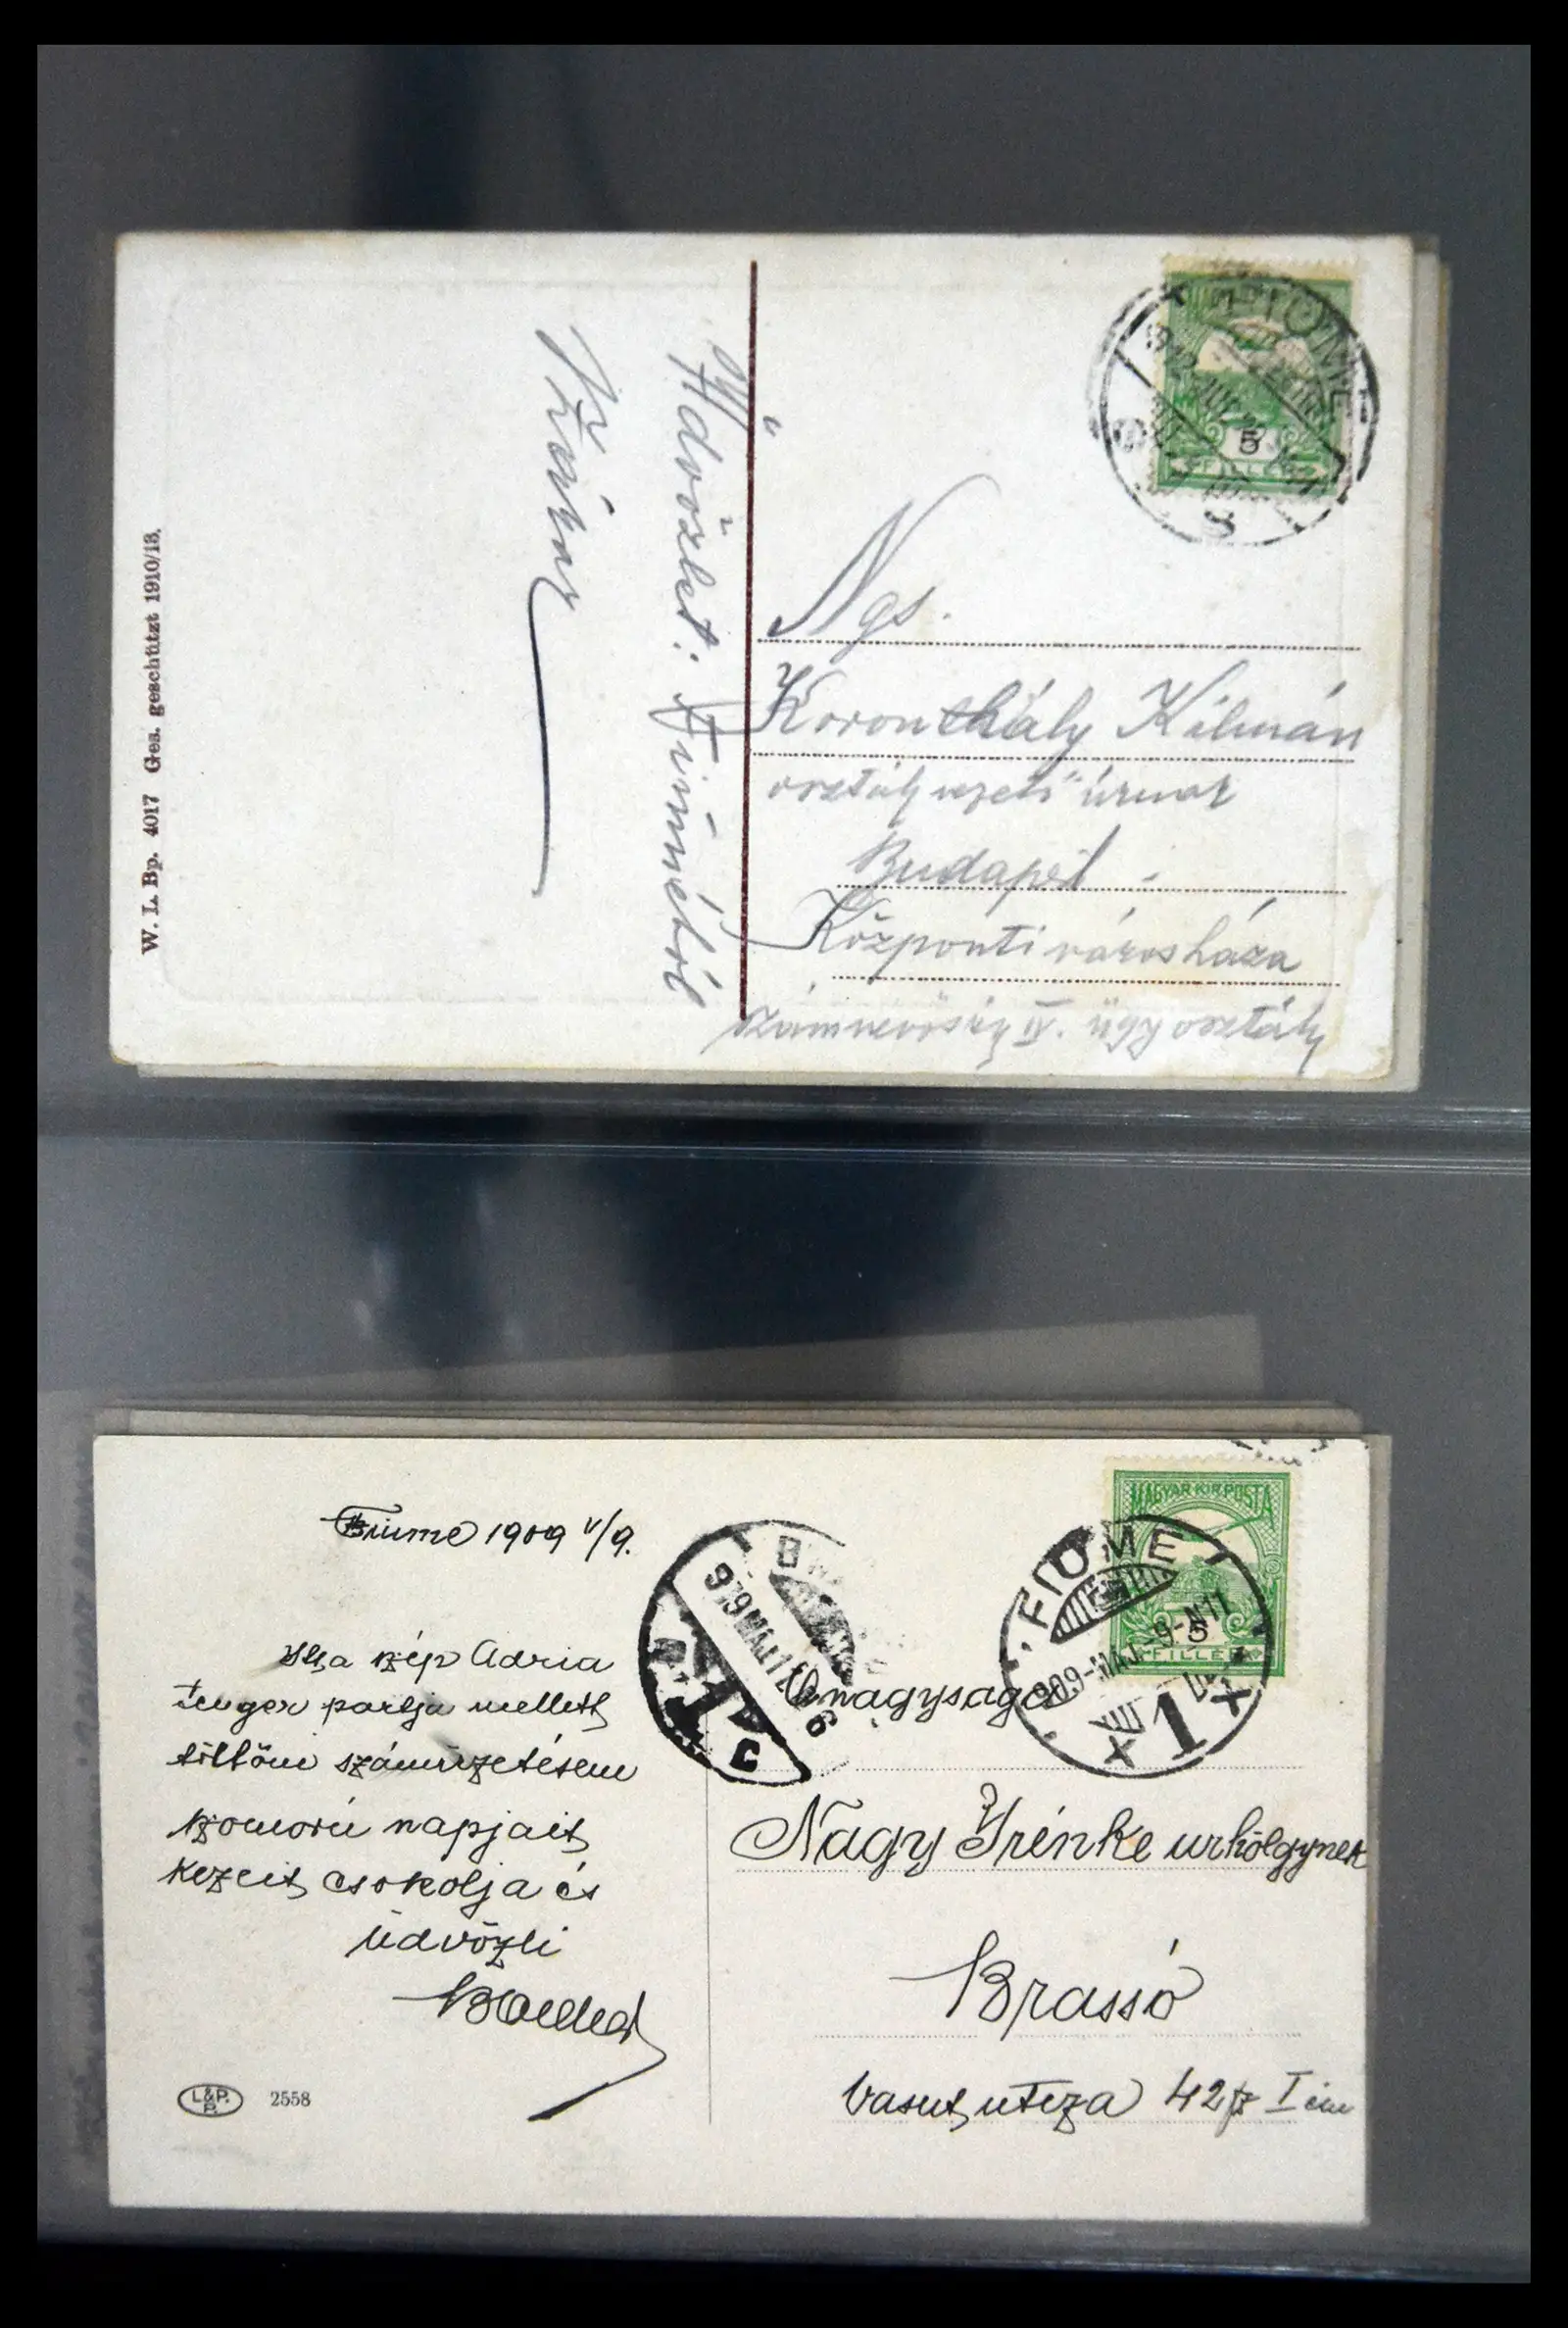 FIUME
5
FILLÉR
Üdvözlet: Fiúméből
Ngs.
Koronthály Kálmán
osztályvezető úrnak
Budapest
Központi városháza
számvevőség IV. ügyosztály
W. L. Bp. 4017 Ges. geschützt 1910/13.
MAGYAR KIR. POSTA
5
FILLÉR
FIUME
909-MÁJ-9-N11
1
Fiume 1909 V/9.
Ily a szép Adria
tenger partja mellett
töltöm száműzetésem
komorú napjait
kezeit csokolja és
üdvözli
Önagysága
Nagy Irénke urhölgynek
Brassó
Vasut utcza 42 sz I em
L&P.
P.
2558